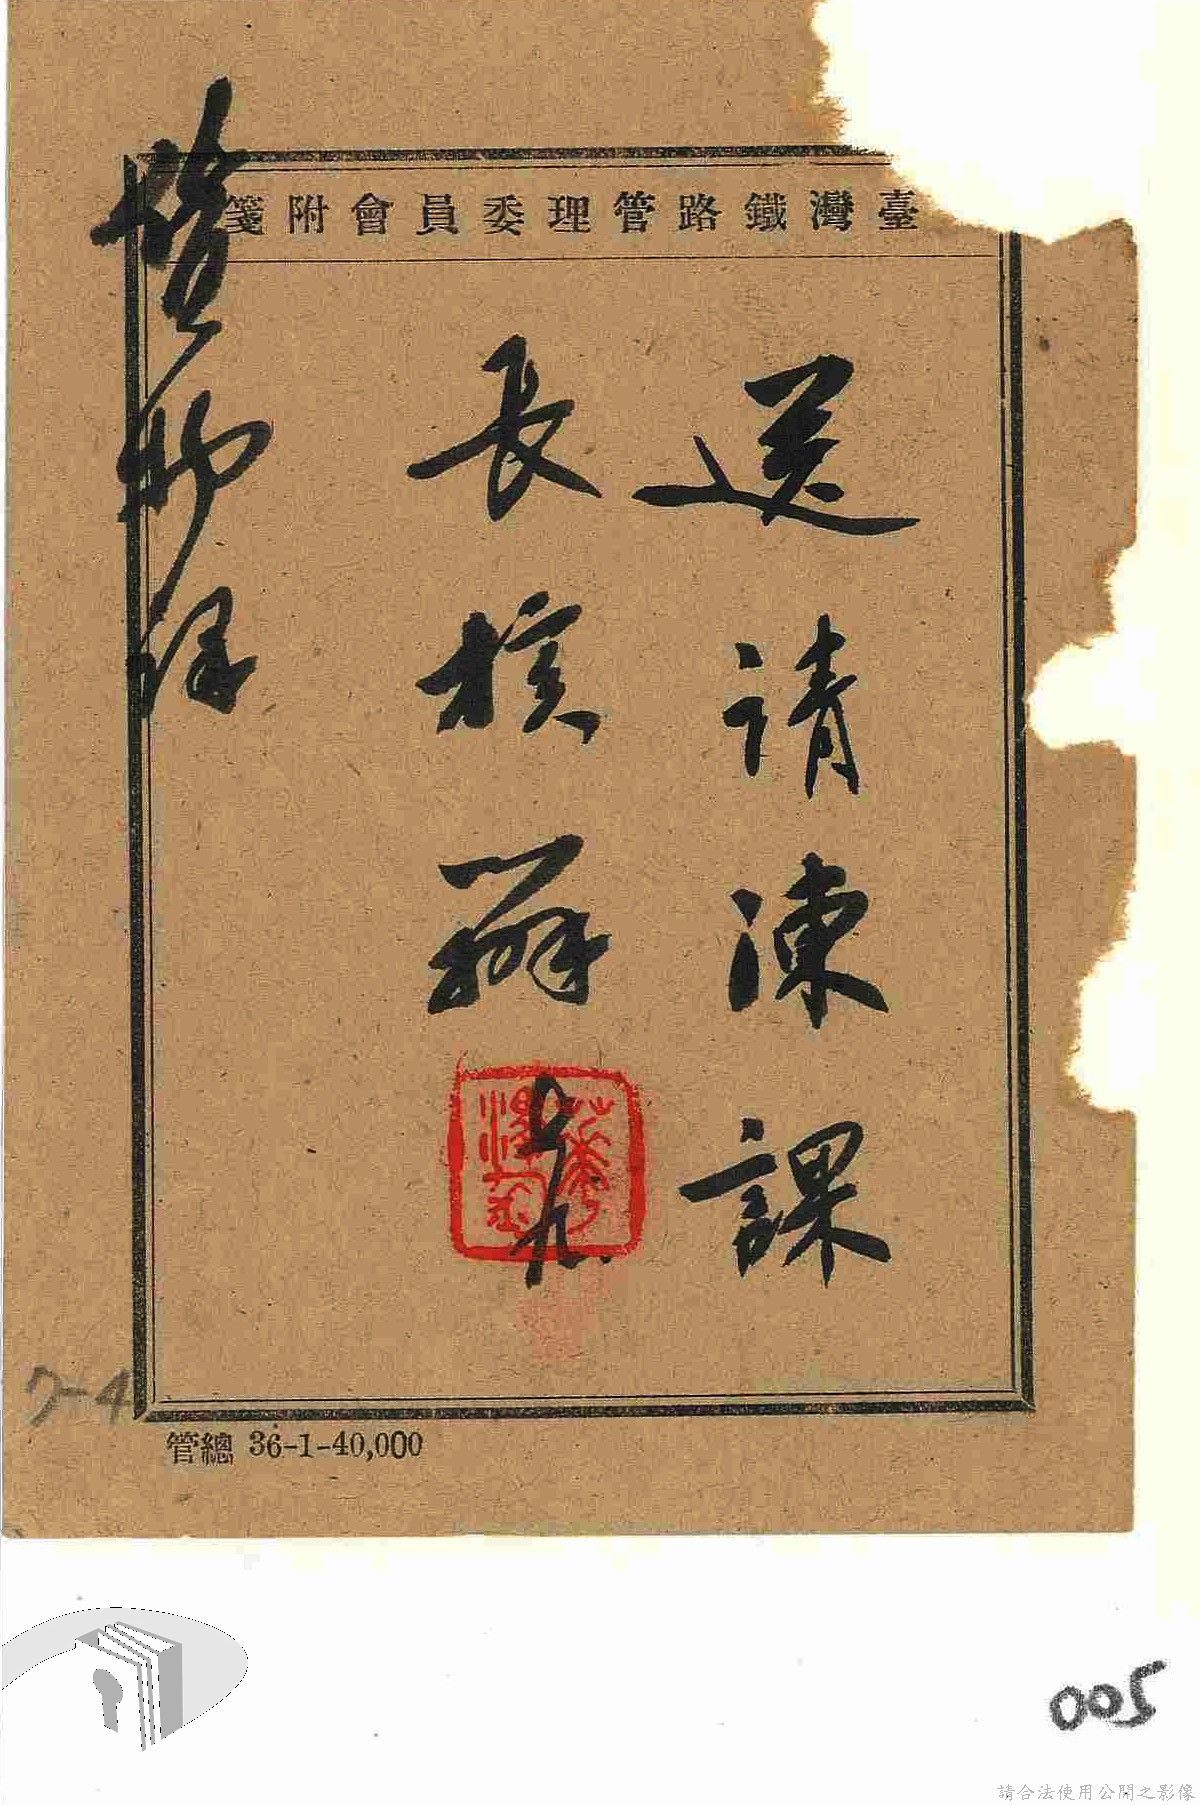 臺灣鐵路管理委員會附箋
送請陳課
長核辦
七九
管總 36-1-40,000
7-4
005
請合法使用公開之影像